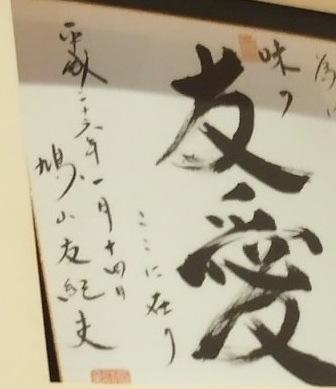 味の
友愛
ここに在り
平成二十六年一月十四日
鳩山友紀夫